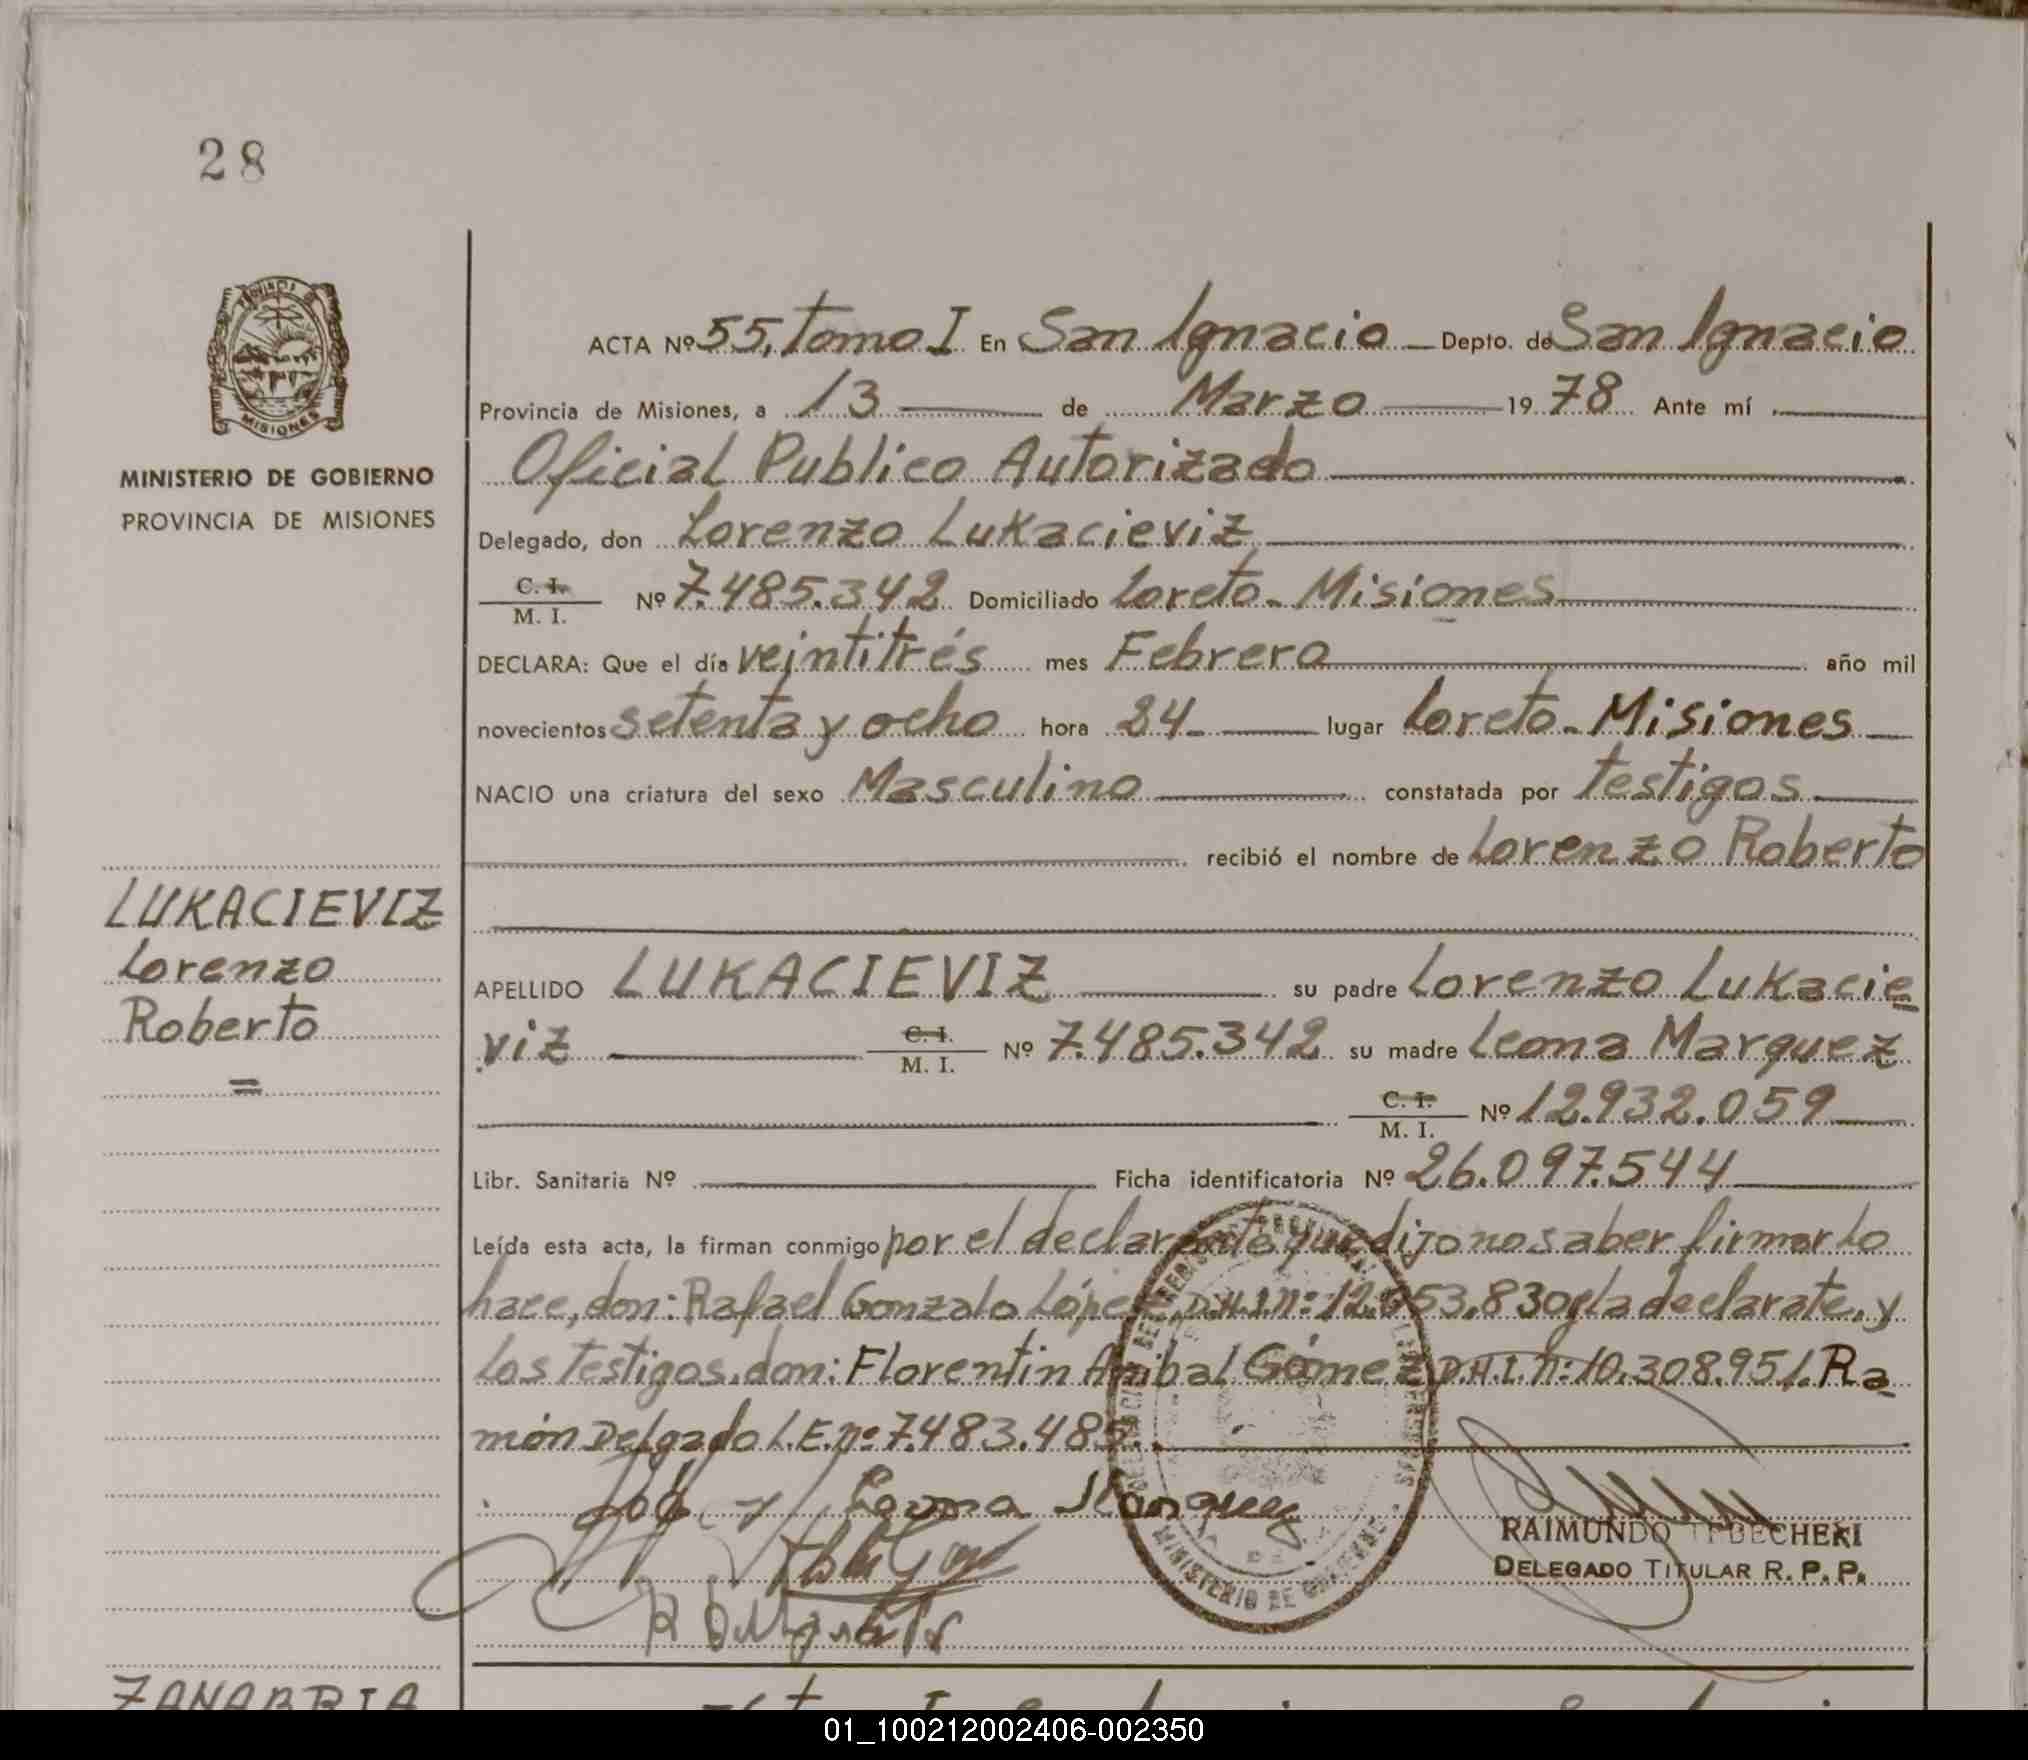 28
PROVINCIA DE
MISIONES
MINISTERIO DE GOBIERNO
PROVINCIA DE MISIONES
ACTA Nº 55, tomo I En San Ignacio Depto. de San Ignacio
Provincia de Misiones, a 13 de Marzo 1978 Ante mí
Oficial Publico Autorizado
Delegado, don Lorenzo Lukacieviz
C. I.
M. I. Nº 7.485.342 Domiciliado Loreto - Misiones
DECLARA: Que el día veintitrés mes Febrero año mil
novecientos setenta y ocho hora 24 - lugar Loreto - Misiones
NACIO una criatura del sexo Masculino constatada por testigos
recibió el nombre de Lorenzo Roberto
LUKACIEVIZ
Lorenzo
Roberto
=
APELLIDO LUKACIEVIZ su padre Lorenzo Lukacie
viz C. I.
M. I. Nº 7.485.342 su madre Leona Marquez
C. I.
M. I. Nº 12.932.059
Libr. Sanitaria Nº Ficha identificatoria Nº 26.097.544
Leída esta acta, la firman conmigo por el declarante que dijo no saber firmar lo
hace, don: Rafael Gonzalo López D.N.I. nº: 12.053.830 y la declarate, y
los testigos, don: Florentin Anibal Gómez D.N.I. n: 10.308.951. Ra
món Delgado L.E. nº 7.483.485.
Leona Marquez
RAIMUNDO TEBECHERI
DELEGADO TITULAR R. P. P.
MINISTERIO DE GOBIERNO
ZANABRIA
01_100212002406-002350